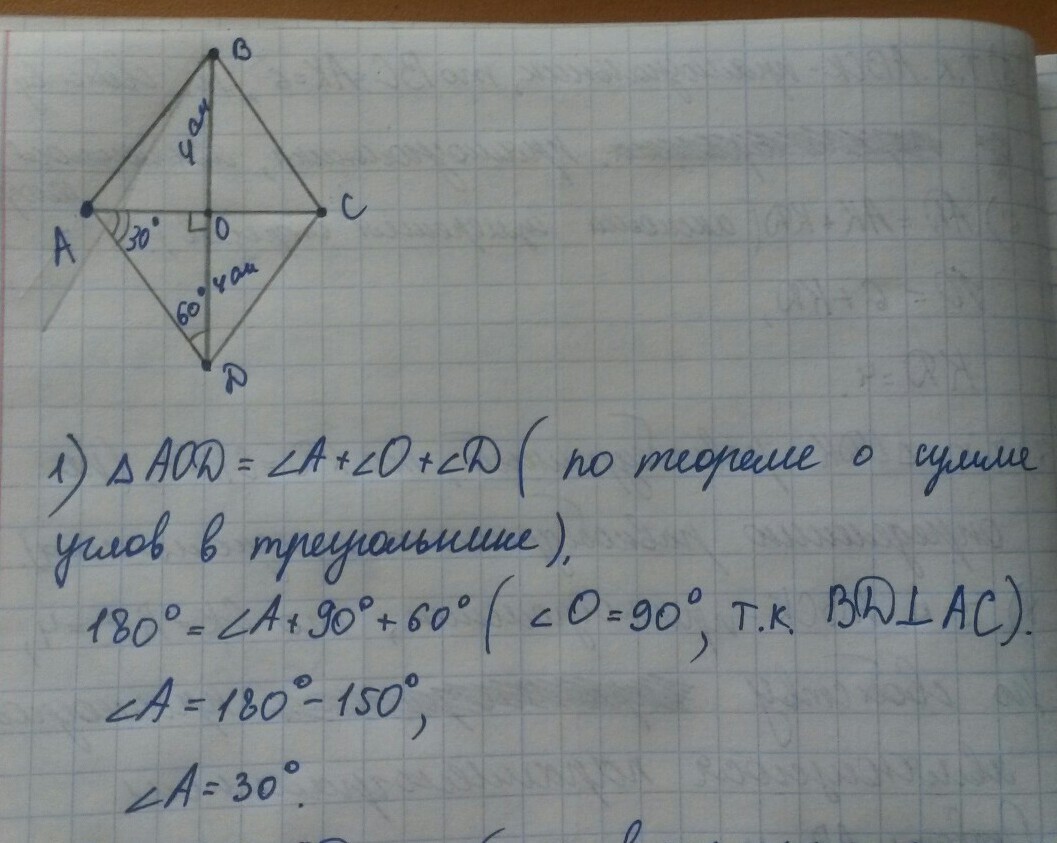 B
4 см
A
30°
O
C
4 см
60°
D
1) △ AOD = ∠A+∠O+∠D ( по теореме о сумме
углов в треугольнике),
180° = ∠A+90°+60° ( ∠O=90°, т.к. BD⊥AC).
∠A = 180°-150°,
∠A = 30°.